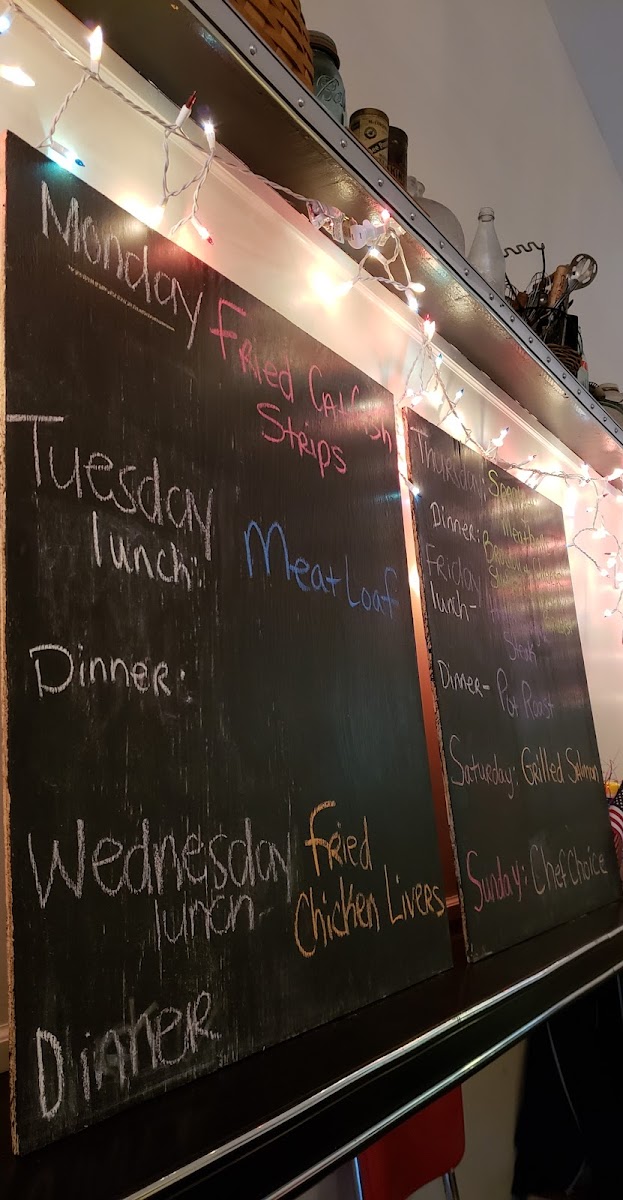 Monday
Fried Catfish
Strips
Tuesday
lunch:
Meat Loaf
Dinner:
Wednesday
lunch
Fried
Chicken Livers
Dinner
Thursday:
Dinner:
Friday
lunch-
Steak
Dinner- Pot Roast
Saturday: Grilled Salmon
Sunday: Chef Choice